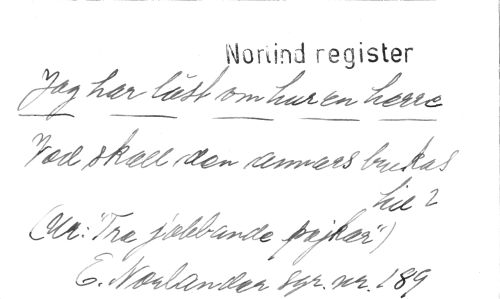 Norlind register
Jag har läst om hur en herre
Vad skall den annars brukas
till?
(Ur: "Tre jobbande pojkar")
E. Norlander syr. nr. 189